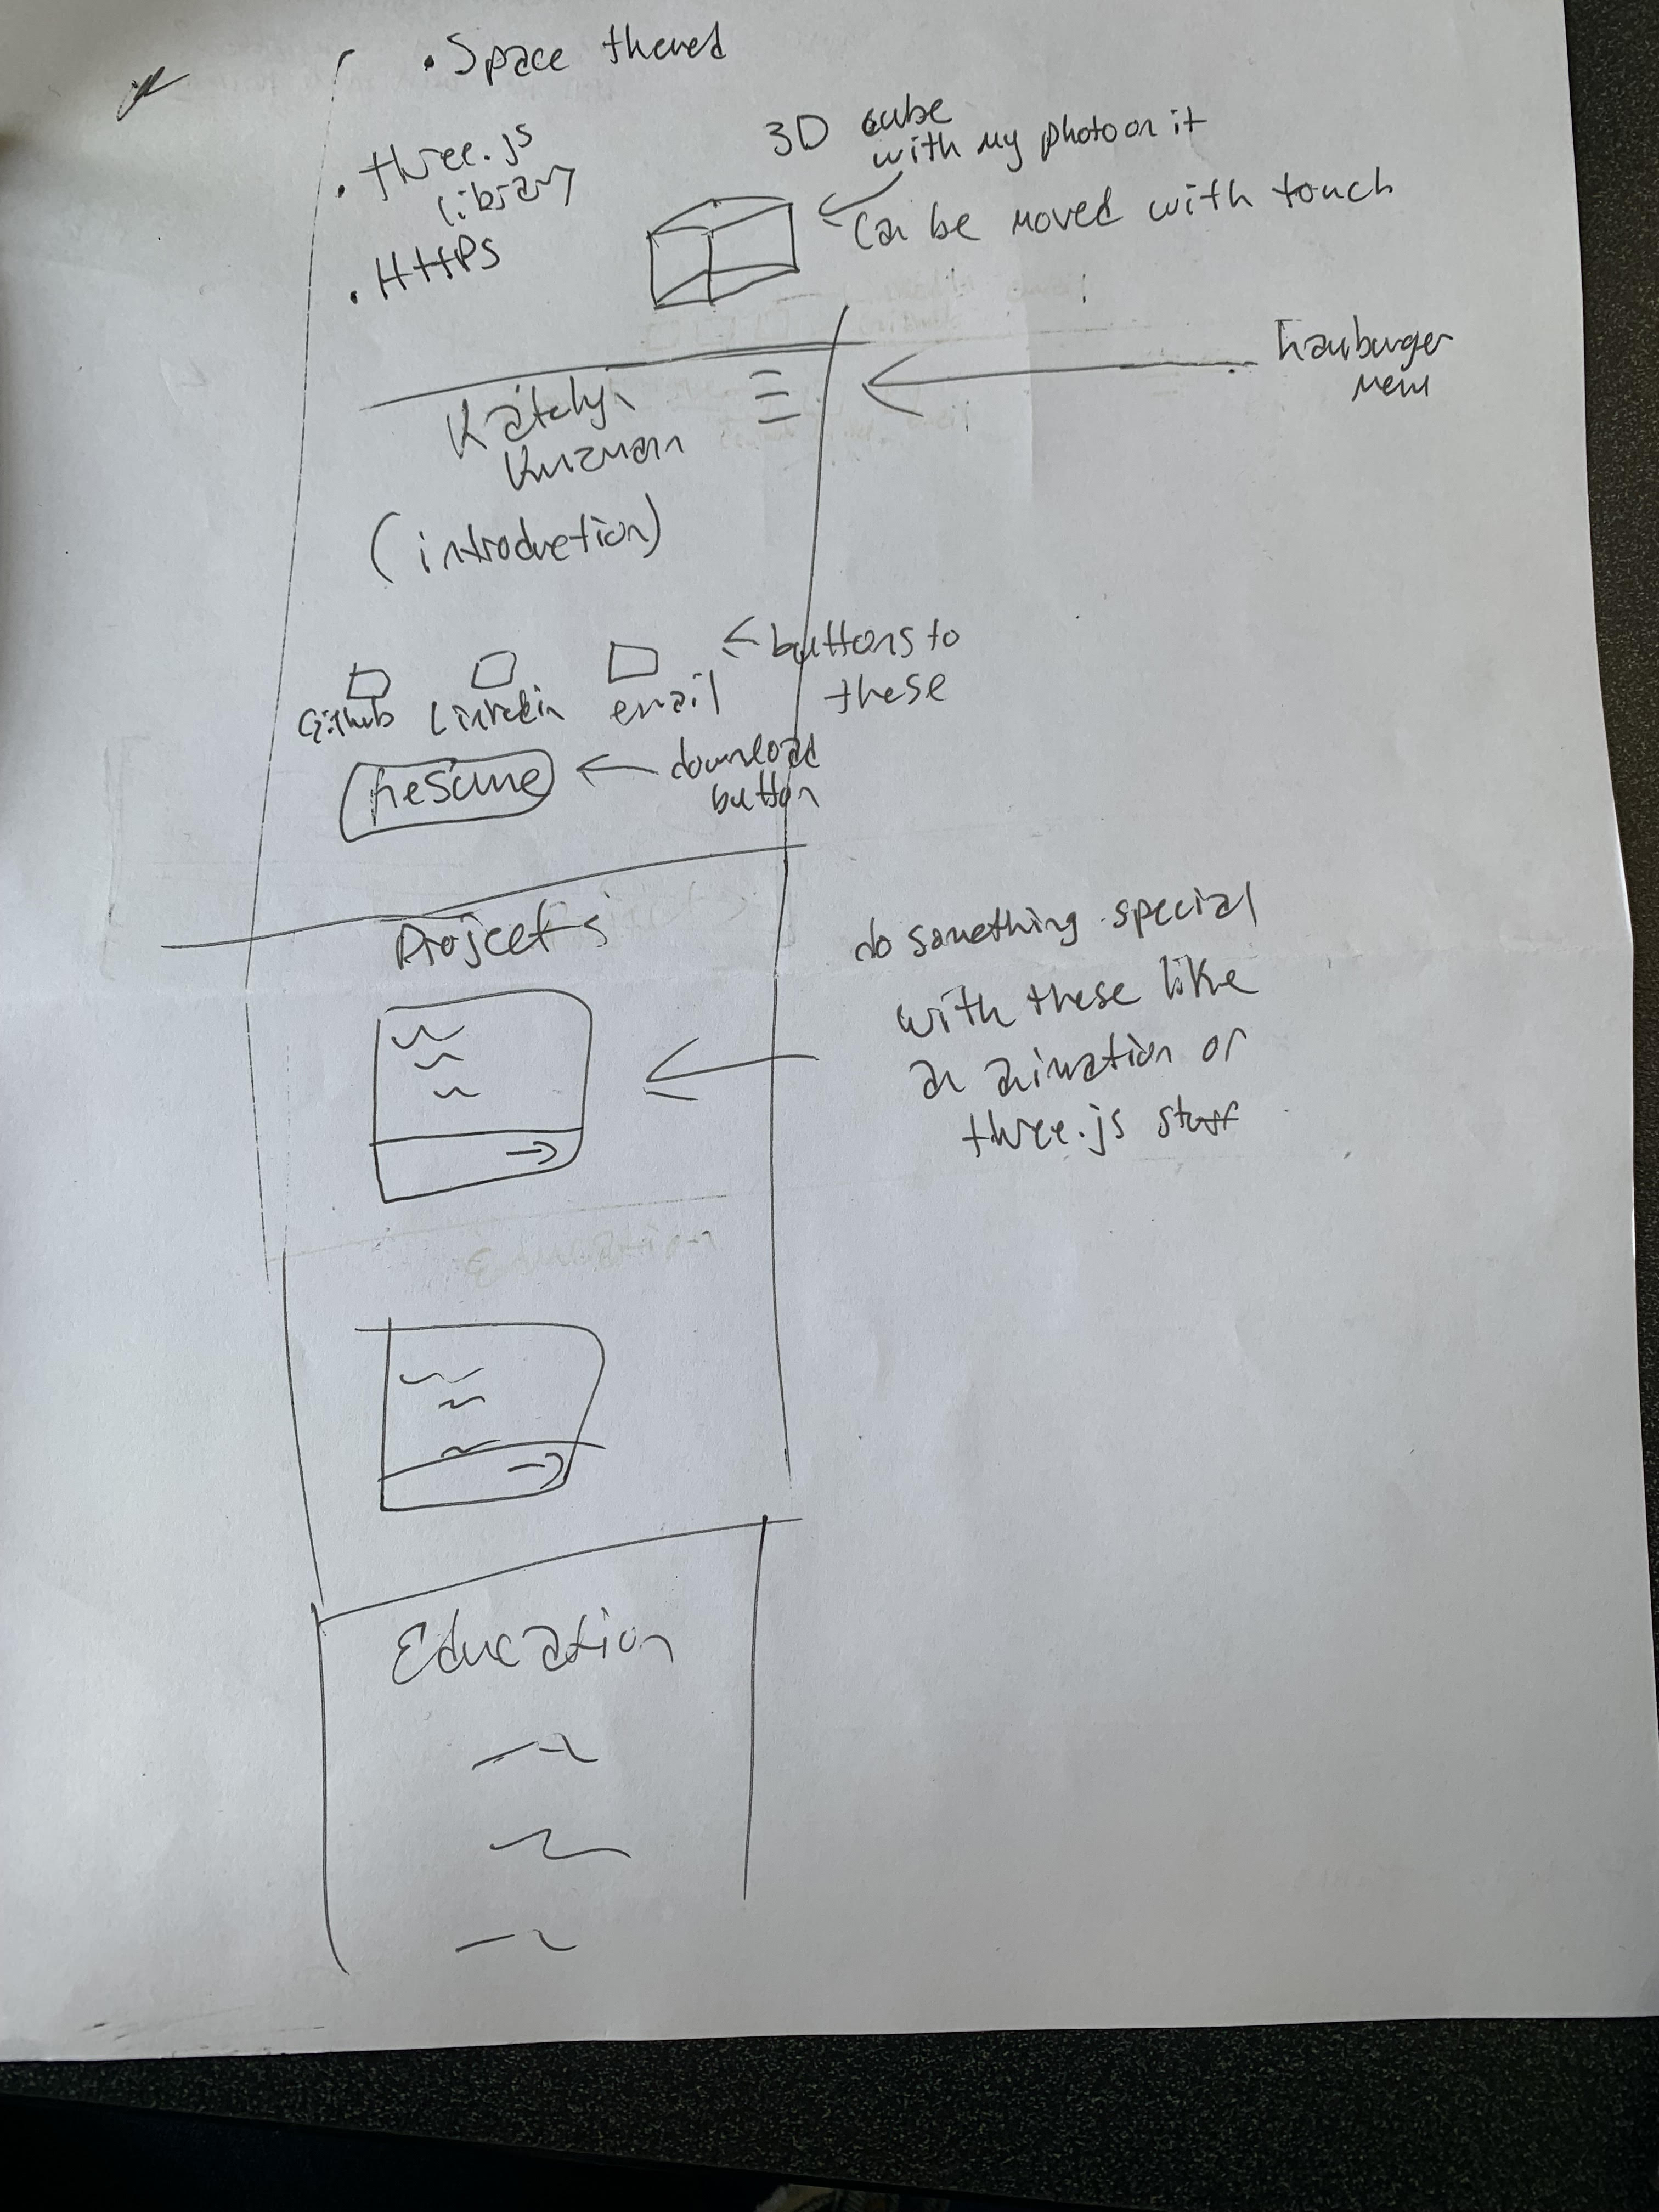 • Space themed
• three.js
library
• HTTPS
3D cube
with my photo on it
Can be moved with touch
hamburger
menu
Katelyn
Kuzman
(introduction)
Github
Linkedin
email
buttons to
these
Resume
download
button
Projects
do something special
with these like
an animation or
three.js stuff
Education